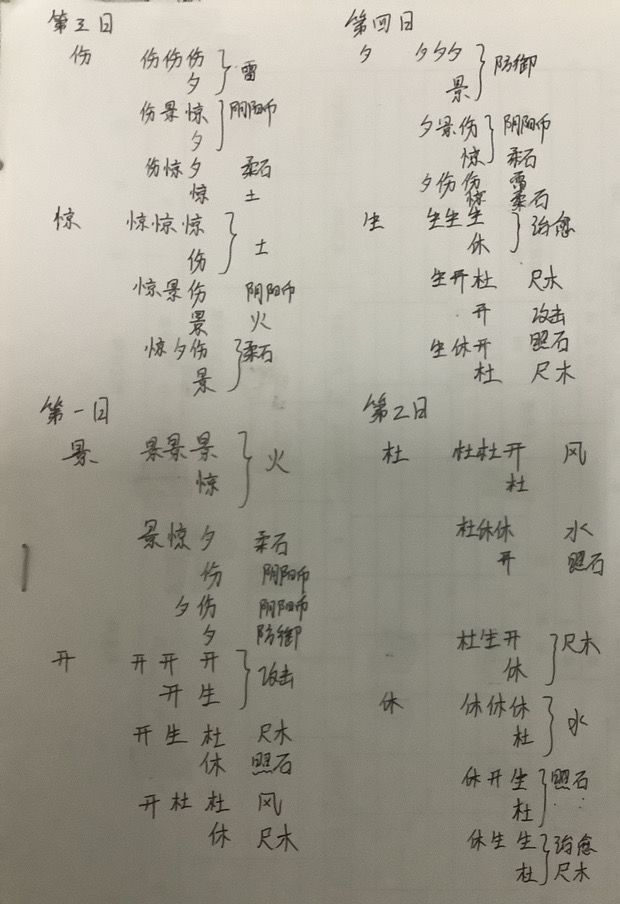 第三日
伤 伤伤伤 雷
夕
伤景惊 阴阳币
夕
伤惊夕 柔石
惊 土
惊 惊惊惊 土
伤
惊景伤 阴阳币
景 火
惊夕伤 柔石
景
第四日
夕 夕夕夕 防御
景
夕景伤 阴阳币
惊 柔石
夕伤伤 雷
惊 柔石
生 生生生 治愈
休
生开杜 尺木
开 攻击
生休开 照石
杜 尺木
第一日
景 景景景 火
惊
景惊夕 柔石
伤 阴阳币
夕伤 阴阳币
夕 防御
开 开开开 攻击
开生
开生杜 尺木
休 照石
开杜杜 风
休 尺木
第2日
杜 杜杜开 风
杜
杜休休 水
开 照石
杜生开 尺木
休
休 休休休 水
杜
休开生 照石
杜
休生生 治愈
杜 尺木